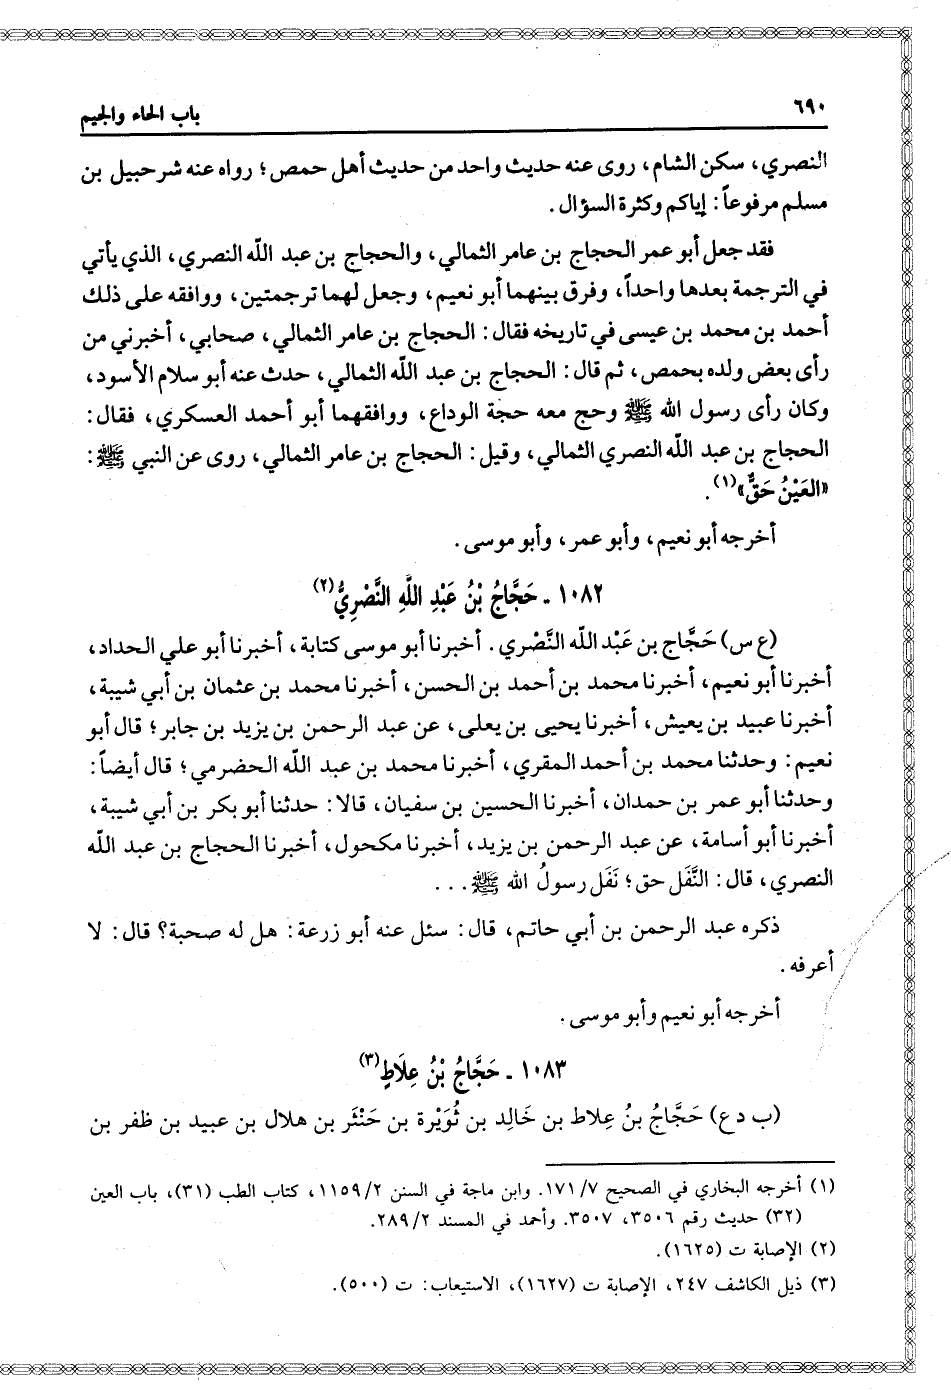 ٦٩٠
باب الحاء والجيم
النصري، سكن الشام، روى عنه حديث واحد من حديث أهل حمص؛ رواه عنه شرحبيل بن
مسلم مرفوعاً: إياكم وكثرة السؤال.
فقد جعل أبو عمر الحجاج بن عامر الثمالي، والحجاج بن عبد اللّه النصري، الذي يأتي
في الترجمة بعدها واحداً، وفرق بينهما أبو نعيم، وجعل لهما ترجمتين، ووافقه على ذلك
أحمد بن محمد بن عيسى في تاريخه فقال: الحجاج بن عامر الثمالي، صحابي، أخبرني من
رأى بعض ولده بحمص، ثم قال: الحجاج بن عبد اللّه الثمالي، حدث عنه أبو سلام الأسود،
وكان رأى رسول الله ﷺ وحج معه حجة الوداع، ووافقهما أبو أحمد العسكري، فقال:
الحجاج بن عبد اللّه النصري الثمالي، وقيل: الحجاج بن عامر الثمالي، روى عن النبي ﷺ:
«العَيْنُ حَقٌّ»(١).
أخرجه أبو نعيم، وأبو عمر، وأبو موسى.
١٠٨٢ - حَجَّاجُ بْنُ عَبْدِ اللَّهِ النَّصْرِيُّ(٢)
(ع س) حَجَّاج بن عَبْد اللّه النَّصْري. أخبرنا أبو موسى كتابة، أخبرنا أبو علي الحداد،
أخبرنا أبو نعيم، أخبرنا محمد بن أحمد بن الحسن، أخبرنا محمد بن عثمان بن أبي شيبة،
أخبرنا عبيد بن يعيش، أخبرنا يحيى بن يعلى، عن عبد الرحمن بن يزيد بن جابر؛ قال أبو
نعيم: وحدثنا محمد بن أحمد المقري، أخبرنا محمد بن عبد اللّه الحضرمي؛ قال أيضاً:
وحدثنا أبو عمر بن حمدان، أخبرنا الحسين بن سفيان، قالا: حدثنا أبو بكر بن أبي شيبة،
أخبرنا أبو أسامة، عن عبد الرحمن بن يزيد، أخبرنا مكحول، أخبرنا الحجاج بن عبد اللّه
النصري، قال: النَّفَل حق؛ نَفَل رسولُ الله ﷺ . . .
ذكره عبد الرحمن بن أبي حاتم، قال: سئل عنه أبو زرعة: هل له صحبة؟ قال: لا
أعرفه.
أخرجه أبو نعيم وأبو موسى.
١٠٨٣ - حَجَّاجُ بْنُ عِلَاطٍ(٣)
(ب د ع) حَجَّاجُ بنُ عِلاط بن خَالِد بن ثُوَيْرة بن حَنْثَر بن هلال بن عبيد بن ظفر بن
(١) أخرجه البخاري في الصحيح ٧/ ١٧١. وابن ماجة في السنن ٢/ ١١٥٩، كتاب الطب (٣١)، باب العين
(٣٢) حديث رقم ٣٥٠٦، ٣٥٠٧. وأحمد في المسند ٢/ ٢٨٩.
(٢) الإصابة ت (١٦٢٥).
(٣) ذيل الكاشف ٢٤٧، الإصابة ت (١٦٢٧)، الاستيعاب: ت (٥٠٠).